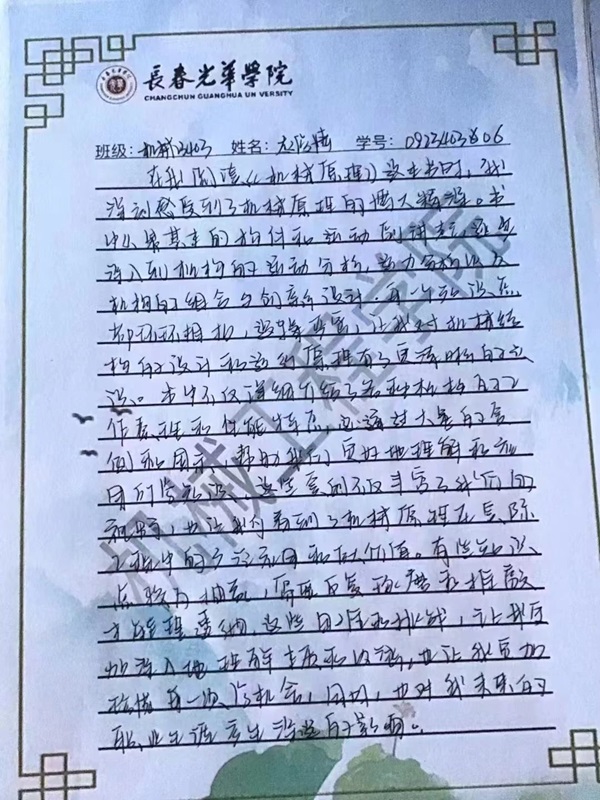 長春光華學院
CHANGCHUN GUANGHUA UNIVERSITY
班级:机械23403 姓名: 学号:0923403806
在我阅读《机械原理》这本书时,我
深刻感受到了机械原理的博大精深。书
中从最基本的构件和运动副讲起,逐步
深入到机构的运动分析,动力分析以及
机构的组合与创新设计.每一个知识点
都环环相扣,逻辑严密,让我对机械结
构的设计和运行原理有了更清晰的认
识。书中不仅详细介绍了各种机构的工
作原理和性能特点,还通过大量的实
例和图示,帮助我们更好地理解和应
用所学知识,这些案例不仅丰富了我们的
视野,也让我们看到了机械原理在实际
工程中的广泛应用和价值。有些知识
点较为抽象,需要反复琢磨和推敲
才能理透彻.这些困难和挑战,让我更
加深入地理解主题和内涵,也让我更加
珍惜每一次学习机会,同时,也对我未来的
职业生涯产生深远的影响。
机械工程学院